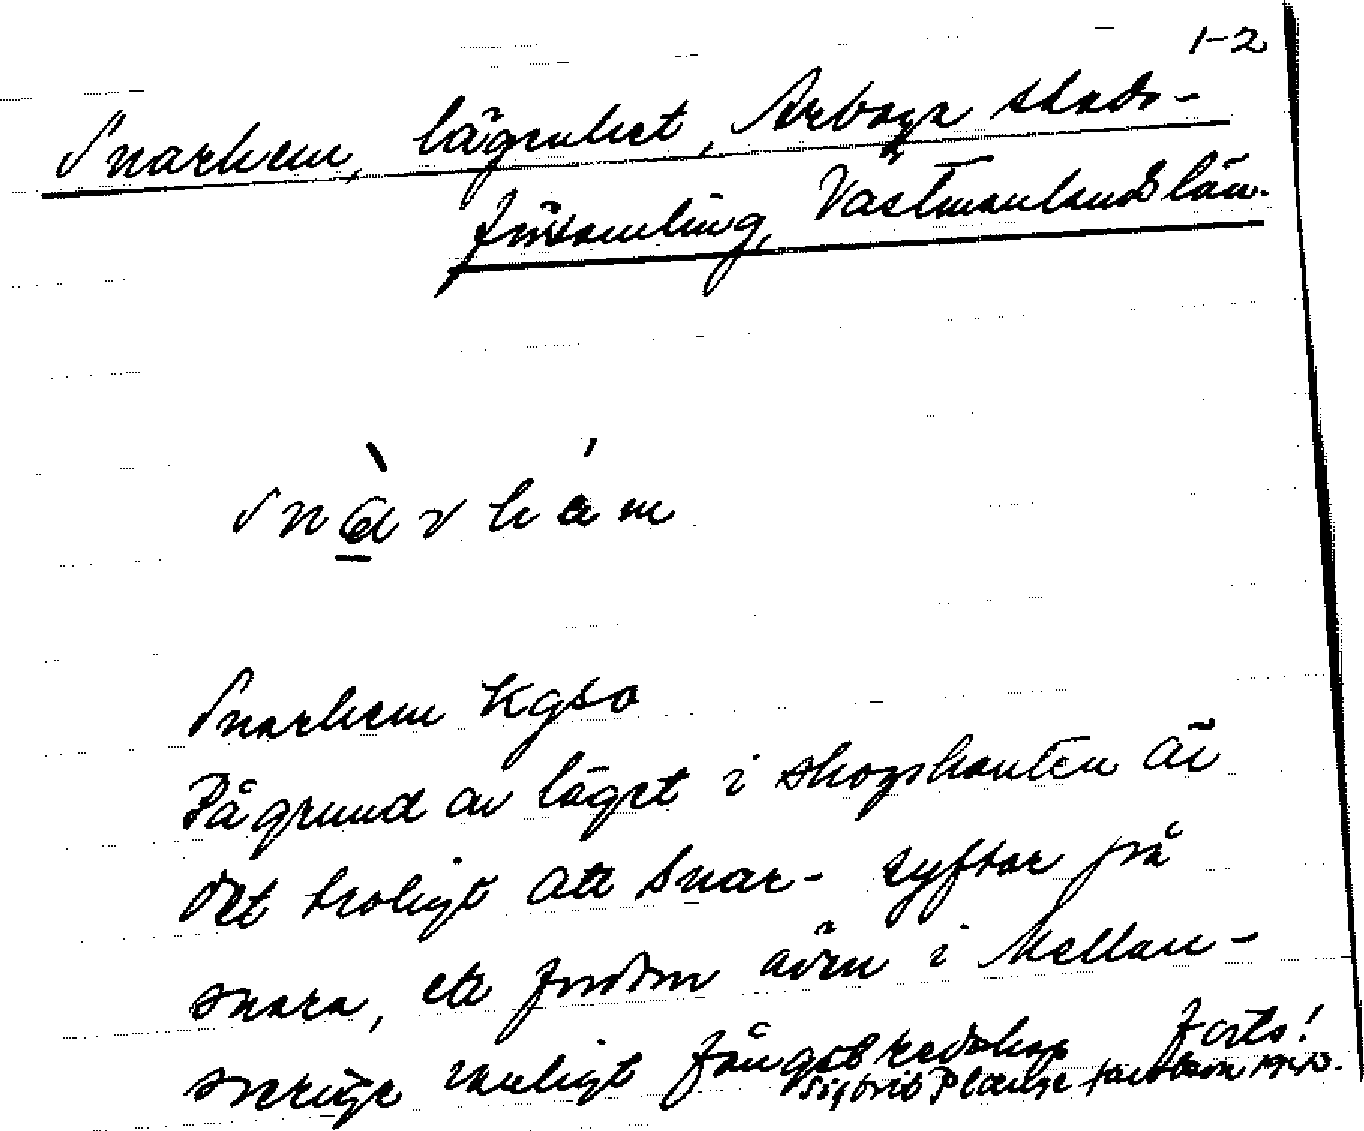 1-2
Snarhem, lägenhet, Arboga stads-
församling, Västmanlands län.
snàrhém
Snarhem Kgbo
På grund av läget i skogskanten är
det troligt att Snar- syftar på
snara, ett fordom även i Mellan-
sverige vanligt fångstredskap forts!
Sigfrid Plange